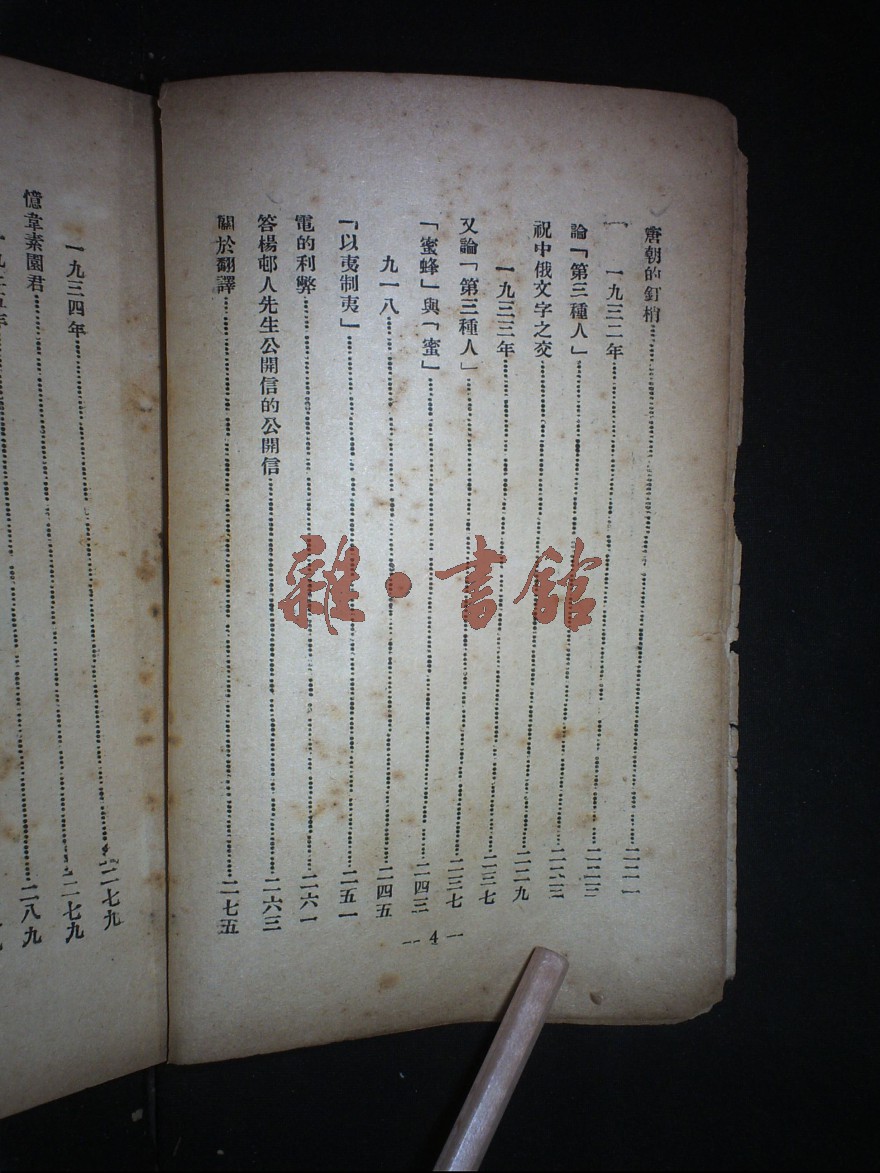 唐朝的釘梢……二二一
一九三二年……二二三
論「第三種人」……二二三
祝中俄文字之交……二二九
一九三三年……二三七
又論「第三種人」……二三七
「蜜蜂」與「蜜」……二四三
九一八……二四五
「以夷制夷」……二五一
電的利弊……二六一
答楊邨人先生公開信的公開信……二六三
關於翻譯……二七五
— 4 —
一九三四年……二七九
憶韋素園君……二八九
雜·書館